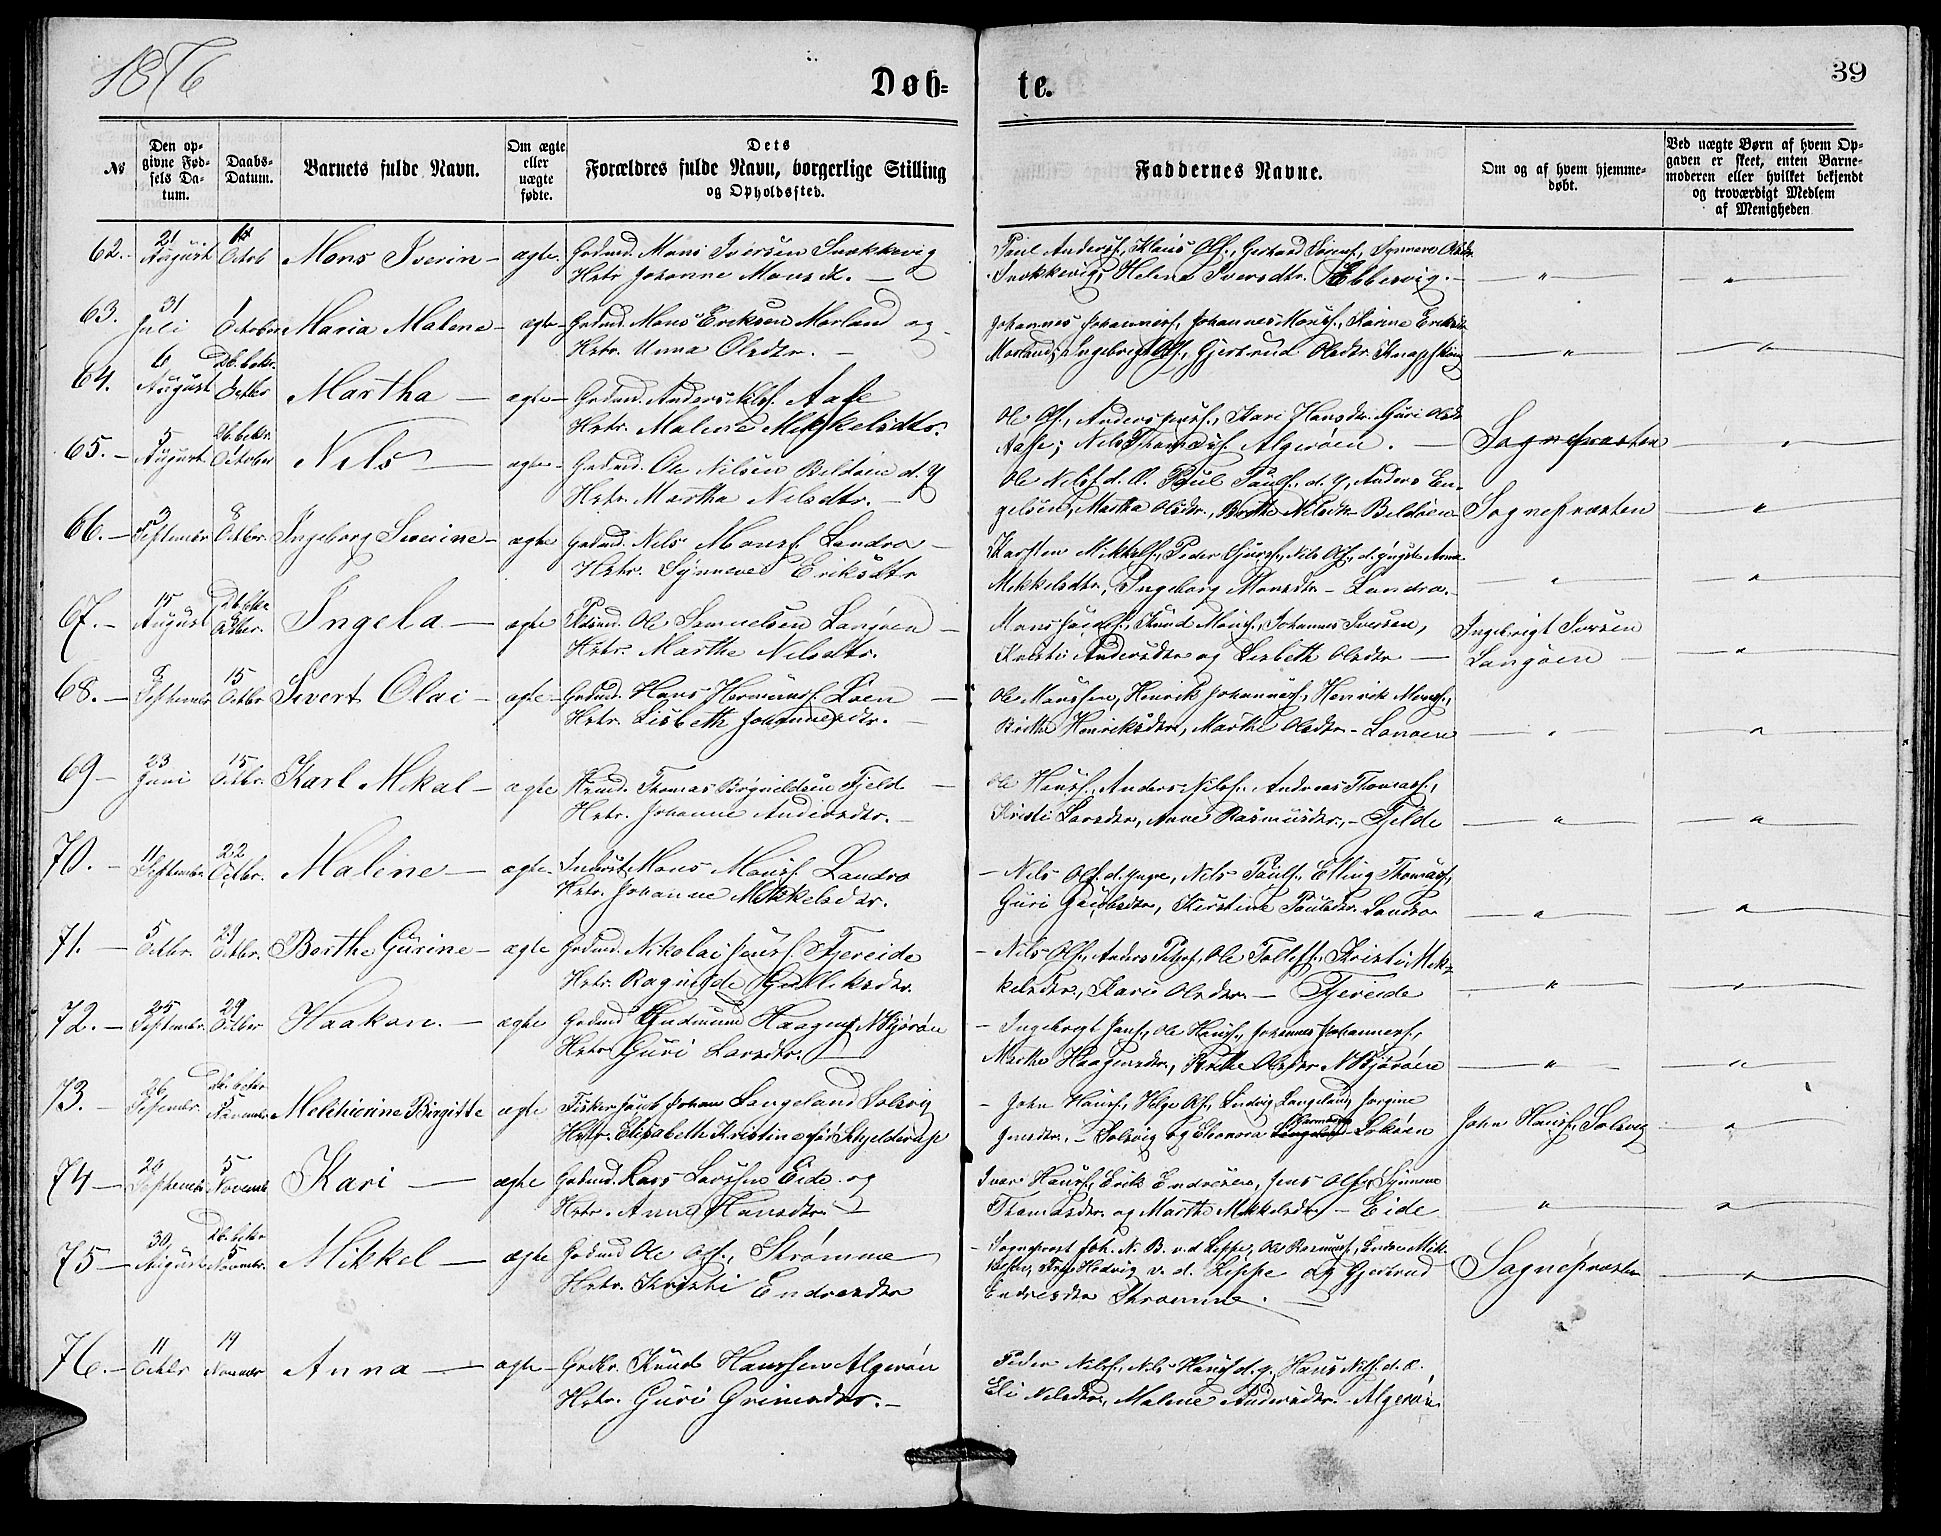 1876
Døb=
te.
39
№
Den op-
givne Fød-
sels Da-
tum.
Daabs-
Datum.
Barnets fulde Navn.
Om ægte
eller
uægte
fødte.
Dets
Forældres fulde Navn, borgerlige Stilling
og Opholdssted.
Faddernes Navne.
Om og af hvem hjemme-
døbt.
Ved uægte Børn af hvem Op-
gaven er skeet, enten Barne-
moderen eller hvilket bekjendt
og troværdigt Medlem
af Menigheden
62. 21 August Octob Mons Iverin - ægte Grdmd. Mons Iversen Snekkevig
Hstr. Johanne Monsd. -
Paul Andersf., Klaus Olf., Gerhard Synneve Olsdtr.
Snekkevig; Helena Iversdtr. Ebbesvig. - " "
63. 31 Juli 1 October Maria Malene - ægte - Grdmd. Mons Eriksen Morland og
Hstr. Unna Olsdtr. -
Johannes Johannesf., Johannes Monsf., Karine
Morland; Ingebrigt Olf., Gjertrud Olsdtr. - " "
64. 6 August Db. bekr. Octbr Martha - ægte - Grdmd. Anders Nilsf. Aase
Hstr. Malene Mikkelsdtr.
Ole Olf., Anders Kari Hansdtr. Guri Olsdtr.
Aase; Nils Thomasf. Algerøen. - Sognepræsten "
65. - 5 August Db. bekr. October Nils - ægte - Grdmd. Ole Nilsen Beldøen d. y
Hstr. Martha Nilsdtr. -
Ole Nilsf. d. Æ. Paul Paulf. d. y, Anders En-
gelsen, Martha Olsdtr., Berthe Nilsdtr Beldøen Sognepræsten "
66. - 3 Septembr 8 Octbr. Ingeborg Severine - ægte Grdmd. Nils Monsf. Landro -
Hstr. Synneve Eriksdtr
Karsten Mikkelf., Peder Nils Olf., d. yngste Anna
Mikkelsdtr., Ingeborg Monsdtr - Landro. " "
67. - 15 August Db. bekr. Octbr. Ingela - ægte Ole Samuelsen Langøen -
Hstr. Marthe Nilsdtr.
Mons Knud Monsf., Johannes Iversen,
Kristi Andersdtr og Lisbeth Olsdtr -
Ingebrigt Iversen
Langøen - "
68. - Septembr 15 Octbr Sivert Olai - ægte Grdmd. Hans Hermansf. Løen -
Hstr. Lisbeth Johannesdtr. -
Ole Monssen, Henrik Johannesf., Henrik Monsf.,
Brithe Henriksdtr, Marthe Olsdtr - " "
69 - 23 Juni 15 Octbr. Karl Mikal - ægte Thomas Fjeld -
Hstr. Johanne Andersdtr. -
Ole Hansf., Anders Nilsf. Andreas Thomasf.,
Kristi Larsdtr, Anne Rasmusdtr, - Fjelde " "
70. - 11 Septembr 22 Octbr. Malene - ægte Inderst Mons Monsf. Landro
Hstr. Johanne Mikkelsdtr.
- Nils Olf. d. yngre, Nils Paulf. Elling Thomasf,
Guri Kirstine Paulsdtr. Landro " "
71. - 5 Octbr. 29 Octbr. Berthe Gurine - ægte Grdmd. Nikolai Jensf. Fjereide
Hstr. Ragnilde
- Nils Olf., Anders Ole Kristi Mik-
kelsdtr., Kari Olsdtr. - Fjereide " "
72. - 25 Septembr. 29 Octbr Haakon. - ægte Grdmd Gudmund Haagens N Bjørøen
Hstr. Guri Larsdtr. -
- Ingebrigt Jansf., Ole Hansf., Johannes Johannesf.,
Marthe Haagensdtr., Brithe Olsdtr N Bjørøen " "
73. - 26 Septembr. Db. bekr. Novembr. Melchiorine Birgitte ægte Fisker Jacob Johan Langeland Solsvig
Hstr. Elisabeth Kristine født Skjelderup
- John Hansf., Helge Olf., Ludvig Langeland, Jorgine
Jensdtr. - Solsvig og Eleonora Langeland - John Hansf. Solsvig "
74 - 20 Septembr 5 Novembr Kari - ægte Grdmd. Lars Larssen Eide og
Hstr. Anne Hansdtr. -
Ivar Hansf., Erik Endresen, Jens Olf., Synneve
Thomasdtr. og Marthe Mikkelsdtr - Eide " "
75 - 30 August Db. bekr 5 Novembr. Mikkel - ægte Grdmd Ole Olf., Strømme
Hstr. Kristi Endresdtr
- Sogneprest Joh. N. B. v. d. Lippe, Ole Rasmusf., Endre Mik-
kelsen, Hedvig v. d. Lippe og Gjertrud
Endresdtr Strømme. - Sognepræsten "
76. - 11 Octbr 19 Novembr Anna - ægte - Grdkr. Knud Hanssen Algerøen
Hstr. Guri Grimsdtr. -
Peder Nilsf., Nils Hansf. d. y. Hans Nilsf. d. æ.
Eli Nilsdtr., Malene Andersdtr. - Algerøen